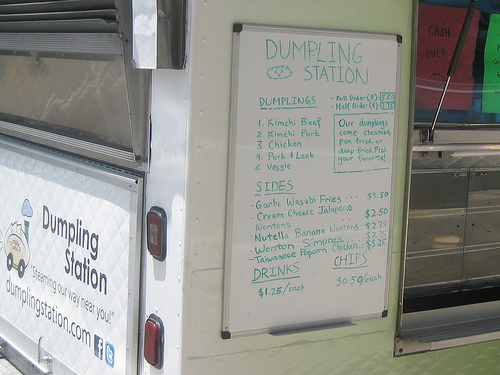 CASH
ONLY
DUMPLING
STATION
DUMPLINGS
- Full Order (8)
- Half Order (4)
1. Kimchi Beef
2. Kimchi Pork
3. Chicken
4. Pork & Leek
5. Veggie
Our dumplings
come steamed,
pan fried, or
deep fried. Pick
your favorite!
SIDES
· Garlic Wasabi Fries ... $3.50
· Cream Cheese Jalapeno
Wontons $2.50
· Nutella Banana Wontons $2.75
· Wonton S'mores $2.75
· Taiwanese Popcorn Chicken... $5.25
DRINKS
$1.25/each
CHIPS
$0.50/each
Dumpling
Station
"Steaming our way near you!"
dumplingstation.com